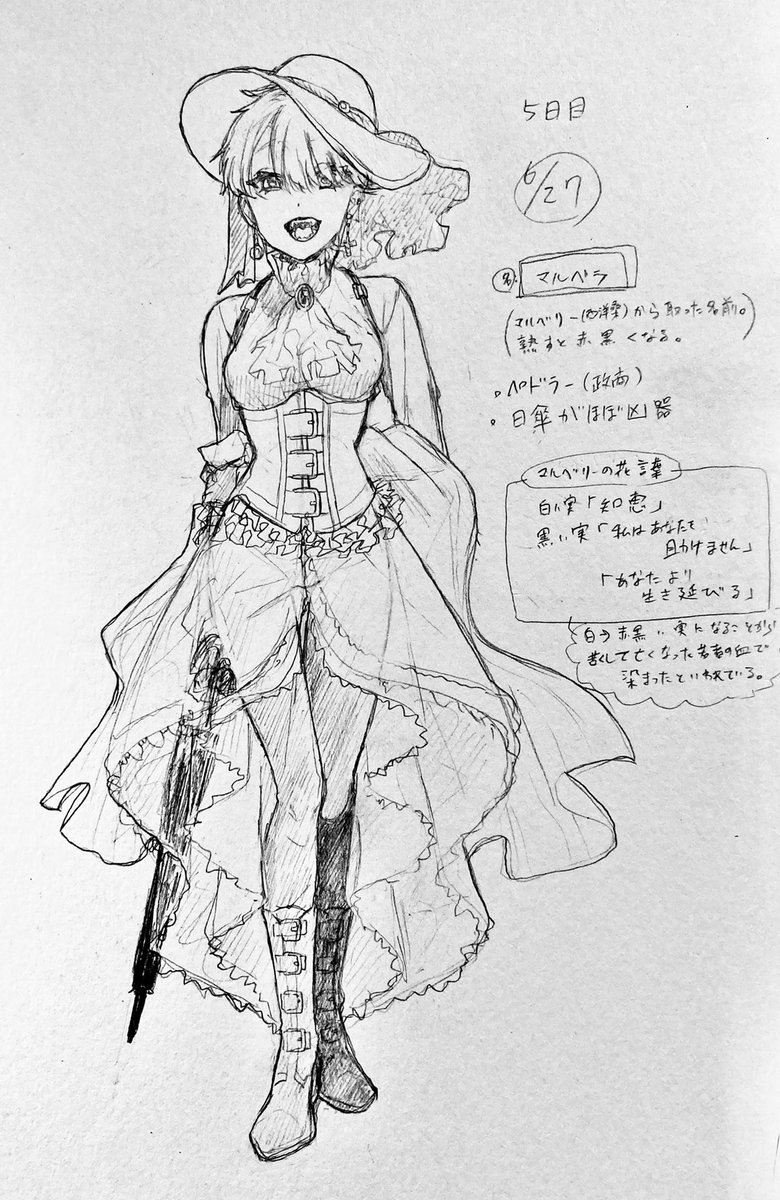 5日目
6/27
名:マルベラ
(マルベリー(西洋桑)から取った名前。
熟すと赤黒くなる。)
・ペドラー(政商)
・日傘がほぼ凶器
マルベリーの花言葉
白い実「知恵」
黒い実「私はあなたを
助けません」
「あなたより
生き延びる」
白→赤黒い実になることから
して亡くなった若者の血で
染まったといわれている。